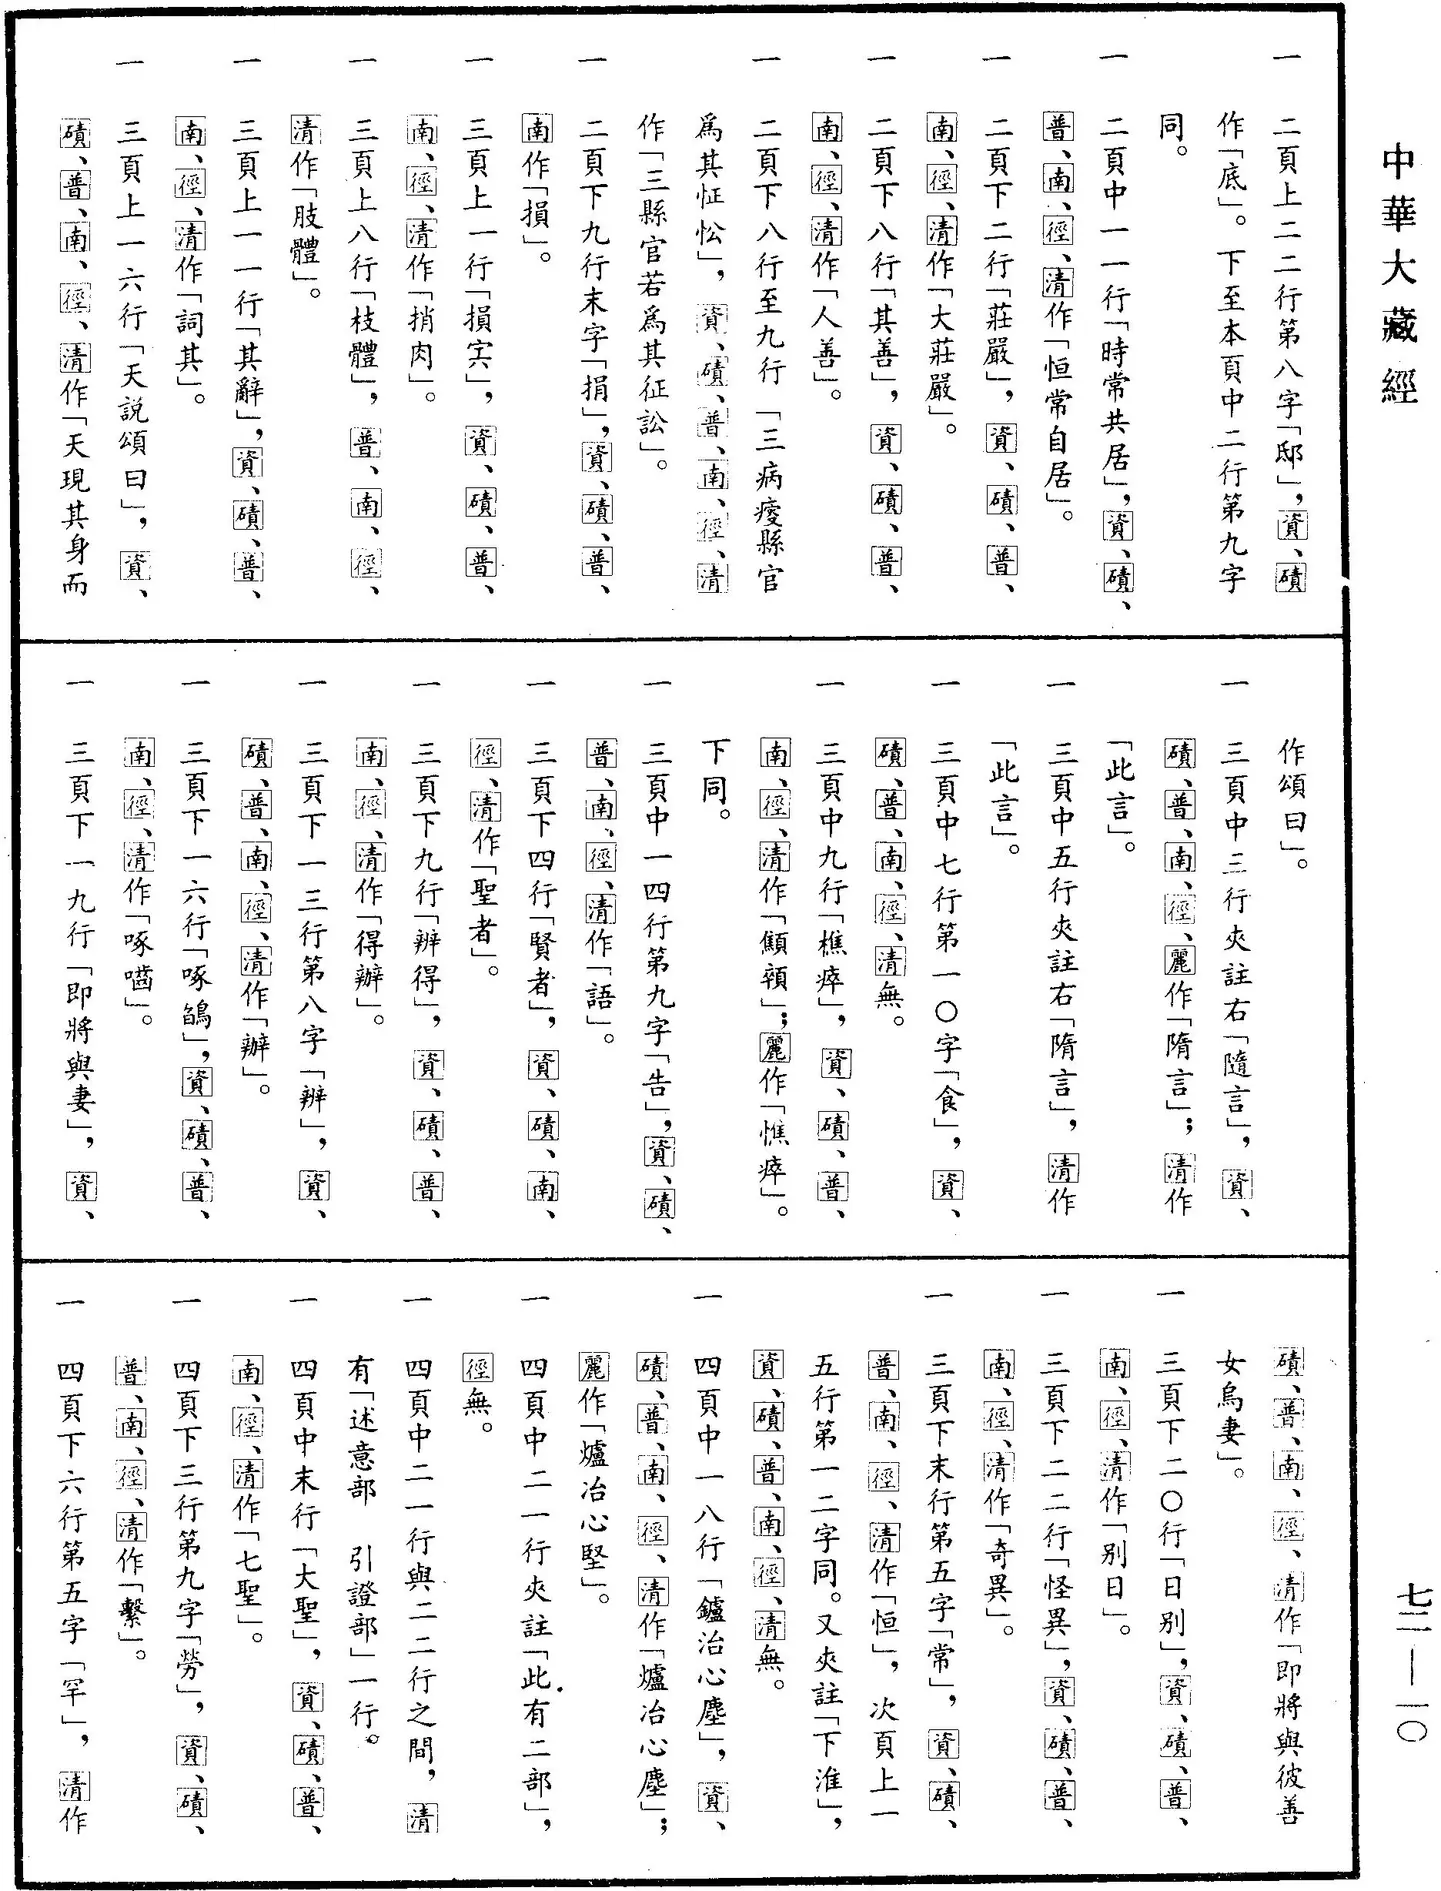 中華大藏經
一 二頁上二二行第八字「邸」，資、磧
作「底」。下至本頁中二行第九字
同。
一 二頁中一一行「時常共居」，資、磧、
普、南、徑、清作「恒常自居」。
一 二頁下二行「莊嚴」，資、磧、普、
南、徑、清作「大莊嚴」。
一 二頁下八行「其善」，資、磧、普、
南、徑、清作「人善」。
一 二頁下八行至九行「三病疫縣官
爲其怔忪」，資、磧、普、南、徑、清
作「三縣官若爲其征訟」。
一 二頁下九行末字「捐」，資、磧、普、
南作「損」。
一 三頁上一行「損宍」，資、磧、普、
南、徑、清作「捎肉」。
一 三頁上八行「枝體」，普、南、徑、
清作「肢體」。
一 三頁上一一行「其辭」，資、磧、普、
南、徑、清作「詞其」。
一 三頁上一六行「天說頌曰」，資、
磧、普、南、徑、清作「天現其身而
作頌曰」。
一 三頁中三行夾註右「隨言」，資、
磧、普、南、徑、麗作「隋言」；清作
「此言」。
一 三頁中五行夾註右「隋言」，清作
「此言」。
一 三頁中七行第一〇字「食」，資、
磧、普、南、徑、清無。
一 三頁中九行「樵瘁」，資、磧、普、
南、徑、清作「顦顇」；麗作「憔瘁」。
下同。
一 三頁中一四行第九字「告」，資、磧、
普、南、徑、清作「語」。
一 三頁下四行「賢者」，資、磧、南、
徑、清作「聖者」。
一 三頁下九行「辨得」，資、磧、普、
南、徑、清作「得辦」。
一 三頁下一三行第八字「辨」，資、
磧、普、南、徑、清作「辦」。
一 三頁下一六行「啄鴿」，資、磧、普、
南、徑、清作「啄嚙」。
一 三頁下一九行「即將與妻」，資、
磧、普、南、徑、清作「即將與彼善
女烏妻」。
一 三頁下二〇行「日别」，資、磧、普、
南、徑、清作「别日」。
一 三頁下二二行「怪異」，資、磧、普、
南、徑、清作「奇異」。
一 三頁下末行第五字「常」，資、磧、
普、南、徑、清作「恒」，次頁上一
五行第一二字同。又夾註「下淮」，
資、磧、普、南、徑、清無。
一 四頁中一八行「鑪治心塵」，資、
磧、普、南、徑、清作「爐冶心塵」；
麗作「爐冶心堅」。
一 四頁中二一行夾註「此有二部」，
徑無。
一 四頁中二一行與二二行之間，清
有「述意部 引證部」一行。
一 四頁中末行「大聖」，資、磧、普、
南、徑、清作「七聖」。
一 四頁下三行第九字「勞」，資、磧、
普、南、徑、清作「繫」。
一 四頁下六行第五字「罕」，清作
七二—一〇